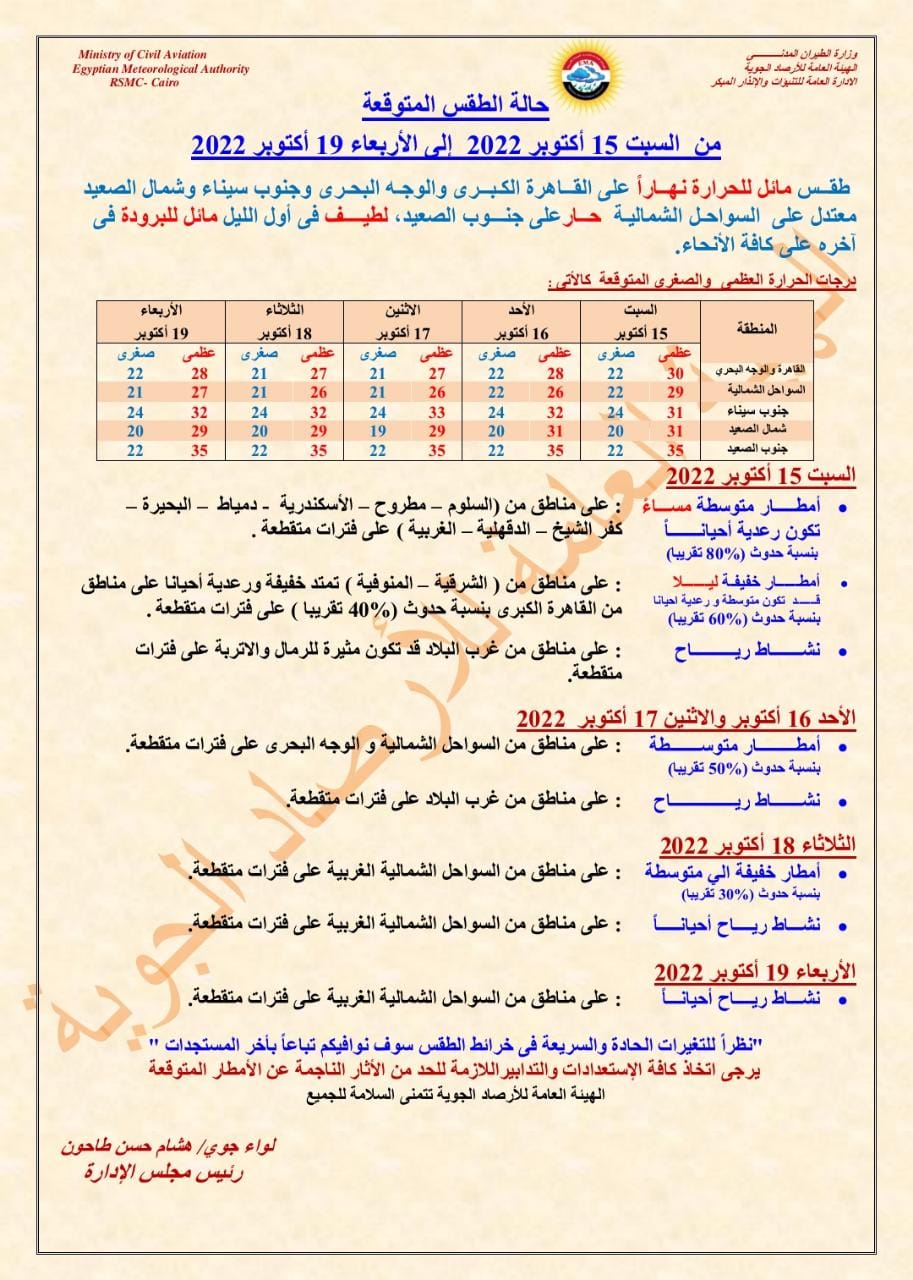 Ministry of Civil Aviation
Egyptian Meteorological Authority
RSMC- Cairo
وزارة الطيران المدنــــى
الهيئة العامة للأرصاد الجوية
الادارة العامة للتنبؤات والإنذار المبكر
E.M.A
حالة الطقس المتوقعة
من السبت 15 أكتوبر 2022 إلى الأربعاء 19 أكتوبر 2022
طقـس مائل للحرارة نهـاراً على القـاهرة الكبـرى والوجـه البحـرى وجنوب سيناء وشمال الصعيد
معتدل على السواحل الشمالية حـارعلى جنـوب الصعيد، لطيـــف فى أول الليل مائل للبرودة فى
آخره على كافة الأنحاء.
درجات الحرارة العظمى والصغرى المتوقعة كالأتى :
المنطقة السبت الأحد الاثنين الثلاثاء الأربعاء
15 أكتوبر 16 أكتوبر 17 أكتوبر 18 أكتوبر 19 أكتوبر
عظمى صغرى عظمى صغرى عظمى صغرى عظمى صغرى عظمى صغرى
القاهرة والوجه البحري 30 22 28 22 27 21 27 21 28 22
السواحل الشمالية 29 22 26 22 26 21 26 21 27 21
جنوب سيناء 31 24 32 24 33 24 32 24 32 24
شمال الصعيد 31 20 31 20 29 19 29 20 29 20
جنوب الصعيد 35 22 35 22 35 22 35 22 35 22
السبت 15 أكتوبر 2022
• أمطـــار متوسطة مســاءً : على مناطق من (السلوم – مطروح – الأسكندرية - دمياط – البحيرة –
تكون رعدية أحيانـــاً كفر الشيخ – الدقهلية – الغربية ) على فترات متقطعة .
بنسبة حدوث (80% تقريبا)
• أمطـــار خفيفة ليـــلا : على مناطق من ( الشرقية – المنوفية ) تمتد خفيفة ورعدية أحيانا على مناطق
قـــد تكون متوسطة و رعدية احيانا من القاهرة الكبرى بنسبة حدوث (40% تقريبا ) على فترات متقطعة .
بنسبة حدوث (60% تقريبا)
• نشـــاط ريـــــاح : على مناطق من غرب البلاد قد تكون مثيرة للرمال والاتربة على فترات
متقطعة.
الأحد 16 أكتوبر والاثنين 17 أكتوبر 2022
• أمطـــار متوســـطة : على مناطق من السواحل الشمالية و الوجه البحرى على فترات متقطعة.
بنسبة حدوث (50% تقريبا)
• نشـــاط ريـــــاح : على مناطق من غرب البلاد على فترات متقطعة.
الثلاثاء 18 أكتوبر 2022
• أمطار خفيفة الي متوسطة : على مناطق من السواحل الشمالية الغربية على فترات متقطعة.
بنسبة حدوث (30% تقريبا)
• نشـــاط ريـــاح أحيانـــاً : على مناطق من السواحل الشمالية الغربية على فترات متقطعة.
الأربعاء 19 أكتوبر 2022
• نشـــاط ريـــاح أحيانـــاً : على مناطق من السواحل الشمالية الغربية على فترات متقطعة.
"نظراً للتغيرات الحادة والسريعة فى خرائط الطقس سوف نوافيكم تباعاً بأخر المستجدات "
يرجى اتخاذ كافة الإستعدادات والتدابيراللازمة للحد من الأثار الناجمة عن الأمطار المتوقعة
الهيئة العامة للأرصاد الجوية تتمنى السلامة للجميع
لواء جوي/ هشام حسن طاحون
رئيس مجلس الإدارة
الهيئة العامة للأرصاد الجوية